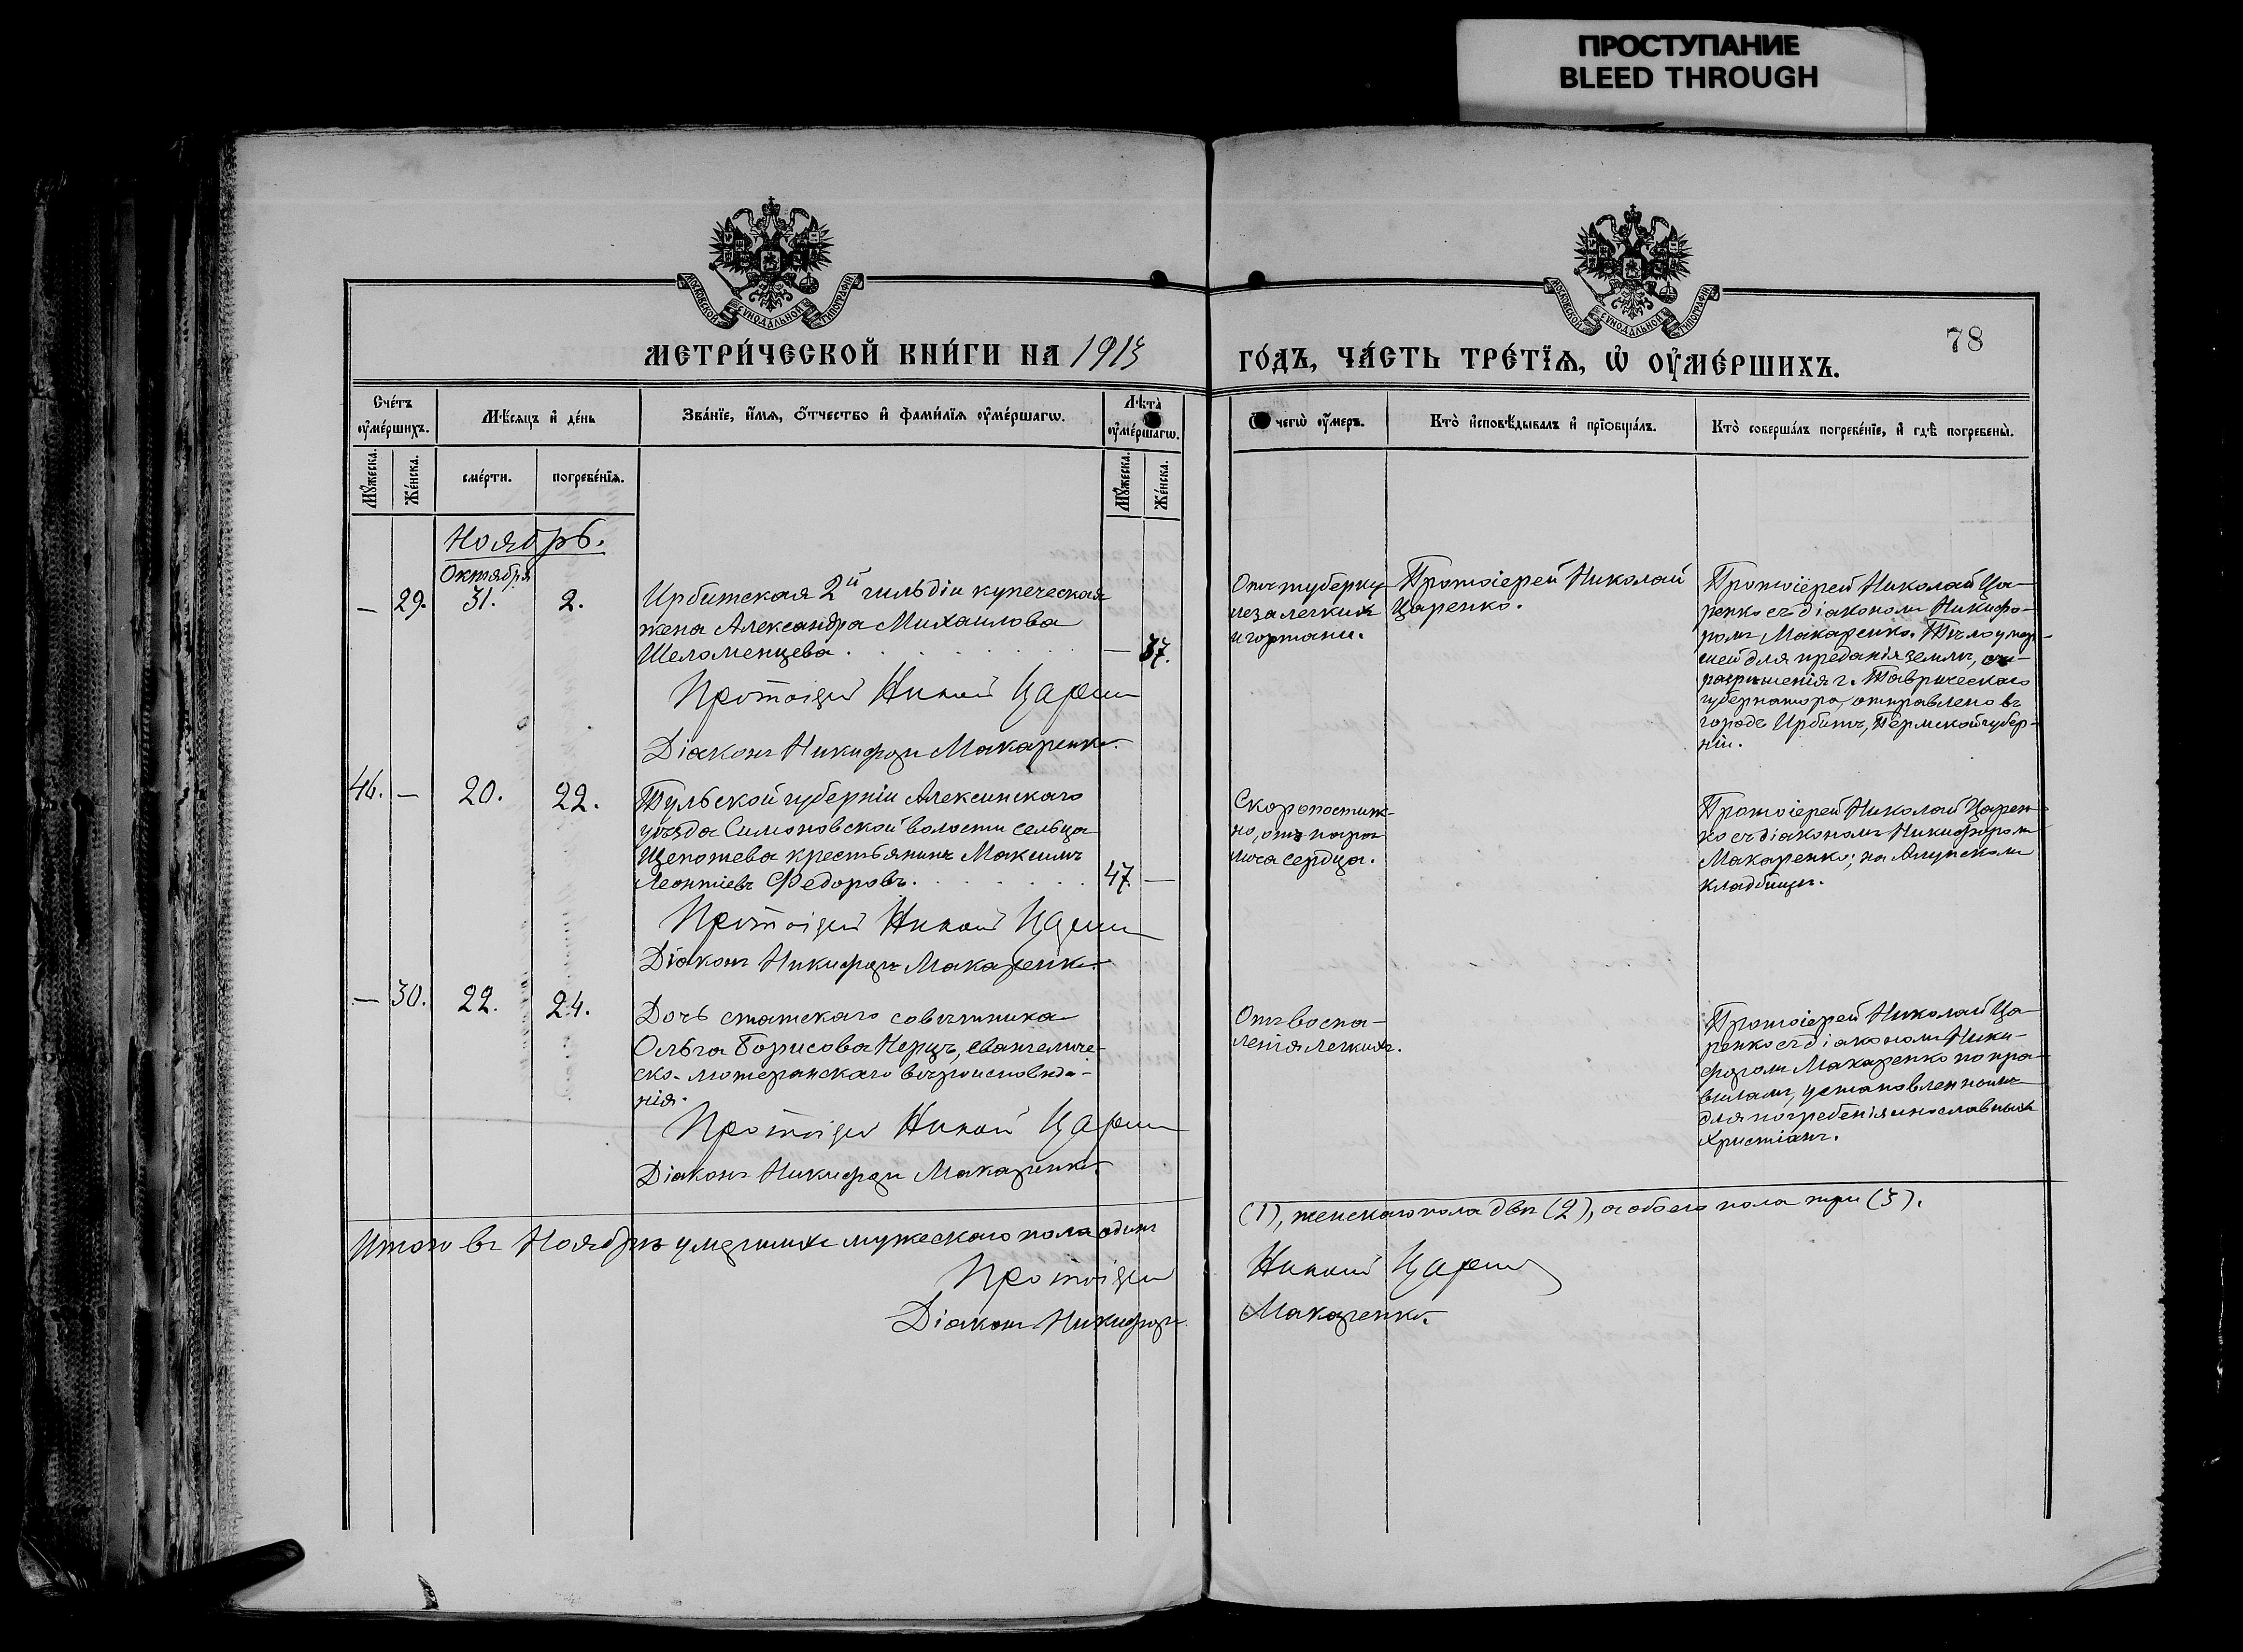 ПРОСТУПАНИЕ
BLEED THROUGH
МОСКОВСКОЙ СУНОДАЛЬНОЙ ТИПОГРАФІИ
МОСКОВСКОЙ СУНОДАЛЬНОЙ ТИПОГРАФІИ
78
МЕТРИ́ЧЕСКОЙ КНИ́ГИ НА 1913
ГО́ДЪ, ЧА́СТЬ ТРЕ́ТЇѦ, Ѡ҆ ОУ҆МЕ́РШИХЪ.
Сче́тъ оу҆ме́ршихъ.
Мѣ́сяцъ и҆ де́нь
Зва́нїе, и҆́мя, ѻ҆́тчество и҆ фами́лїя оу҆ме́ршагѡ.
Лѣ́та̀ оу҆ме́ршагѡ.
чегѡ̀ оу҆́меръ.
Кто̀ и҆сповѣ́дывалъ и҆ прїѡбща́лъ.
Кто̀ соверша́лъ погребе́нїе, и҆ гдѣ̀ погребены̀.
Мꙋ́жеска.
Же́нска.
сме́рти.
погребе́нїя.
Мꙋ́жеска.
Же́нска.
Ноябрь.
Октября
— 29. 31. 2.
Ирбитская 2й гильдіи купеческая
жена Александра Михаилова
Шеломенцева . . . . . . . — 37.
Протоіерей Николай Царенко
Діаконъ Никифоръ Макаренко.
Отъ туберку
леза легкихъ
и гортани.
Протоіерей Николай
Царенко.
Протоіерей Николай Ца-
ренко съ діакономъ Никифо-
ромъ Макаренко. Тѣло умер-
шей для преданія землѣ, съ
разрѣшенія г. Таврическаго
губернатора, отправлено въ
городъ Ирбитъ, Пермской губер-
ніи.
46. — 20. 22.
Тульской губерніи Алексинскаго
уѣзда Симоновской волости сельца
Щепотева крестьянинъ Максимъ
Леонтіевъ Федоровъ. . . . . . . 47. —
Протоіерей Николай Царенко
Діаконъ Никифоръ Макаренко.
Скоропостиж-
но, отъ пара
лича сердца.
Протоіерей Николай Царен
ко съ діакономъ Никифоромъ
Макаренко; на Алупскомъ
кладбищѣ.
— 30. 22. 24.
Дочь статскаго совѣтника
Ольга Борисова Герцъ, евангеличе-
ско-лютеранскаго вѣроисповѣда-
нія.
Протоіерей Николай Царенко
Діаконъ Никифоръ Макаренко.
Отъ воспа-
ленія легкихъ.
Протоіерей Николай Ца-
ренко съ діакономъ Ники-
форомъ Макаренко по пра-
виламъ, установленнымъ
для погребенія инославныхъ
христіанъ.
Итого въ Ноябрѣ умершихъ мужескаго пола одинъ
(1), женскаго пола двѣ (2), а обоего пола три (3).
Протоіерей Николай Царенко
Діаконъ Никифоръ Макаренко.